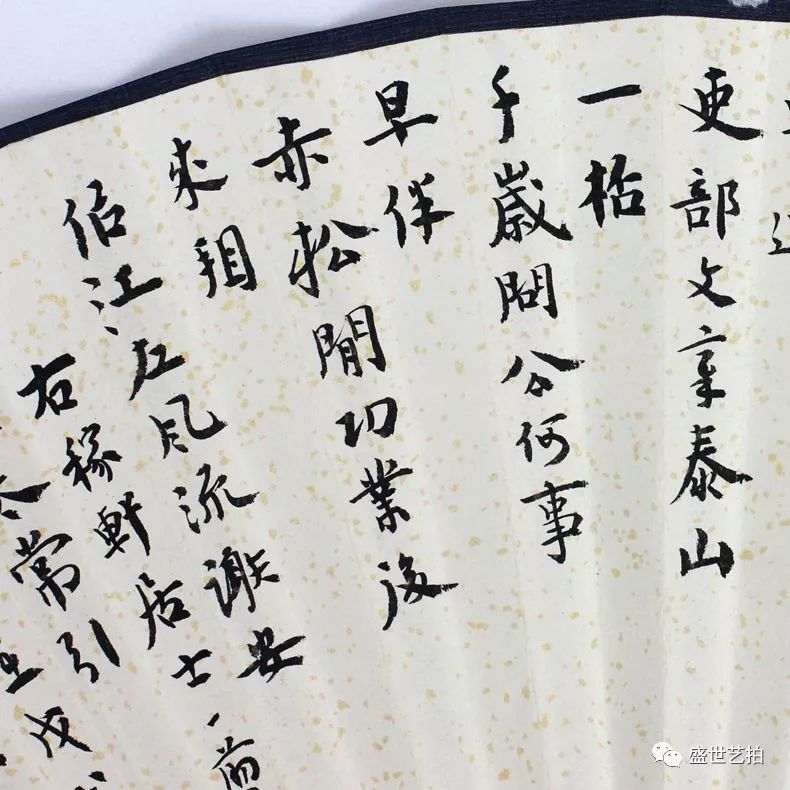 吏部文章泰山
一桮
千歲問公何事
早伴
赤松閒功業後
來看
佀江左風流謝安
右稼軒居士
太常引
盛世艺拍